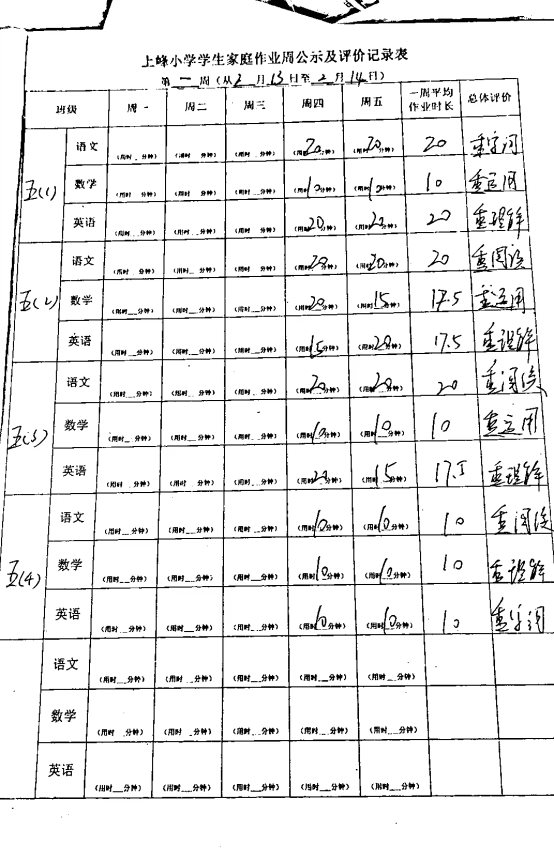 上峰小学学生家庭作业周公示及评价记录表
第 一 周（从 2 月 13 日至 2 月 14 日）
班级 周一 周二 周三 周四 周五 一周平均作业时长 总体评价
五(1) 语文 （用时__分钟） （用时__分钟） （用时__分钟） （用时20分钟） （用时20分钟） 20 重字词
数学 （用时__分钟） （用时__分钟） （用时__分钟） （用时10分钟） （用时10分钟） 10 重运用
英语 （用时__分钟） （用时__分钟） （用时__分钟） （用时20分钟） （用时20分钟） 20 重理解
五(2) 语文 （用时__分钟） （用时__分钟） （用时__分钟） （用时20分钟） （用时20分钟） 20 重阅读
数学 （用时__分钟） （用时__分钟） （用时__分钟） （用时20分钟） （用时15分钟） 17.5 重运用
英语 （用时__分钟） （用时__分钟） （用时__分钟） （用时15分钟） （用时20分钟） 17.5 重理解
五(3) 语文 （用时__分钟） （用时__分钟） （用时__分钟） （用时20分钟） （用时20分钟） 20 重阅读
数学 （用时__分钟） （用时__分钟） （用时__分钟） （用时10分钟） （用时10分钟） 10 重运用
英语 （用时__分钟） （用时__分钟） （用时__分钟） （用时20分钟） （用时15分钟） 17.5 重理解
五(4) 语文 （用时__分钟） （用时__分钟） （用时__分钟） （用时10分钟） （用时10分钟） 10 重阅读
数学 （用时__分钟） （用时__分钟） （用时__分钟） （用时10分钟） （用时10分钟） 10 重理解
英语 （用时__分钟） （用时__分钟） （用时__分钟） （用时10分钟） （用时10分钟） 10 重字词
语文 （用时__分钟） （用时__分钟） （用时__分钟） （用时__分钟） （用时__分钟）
数学 （用时__分钟） （用时__分钟） （用时__分钟） （用时__分钟） （用时__分钟）
英语 （用时__分钟） （用时__分钟） （用时__分钟） （用时__分钟） （用时__分钟）